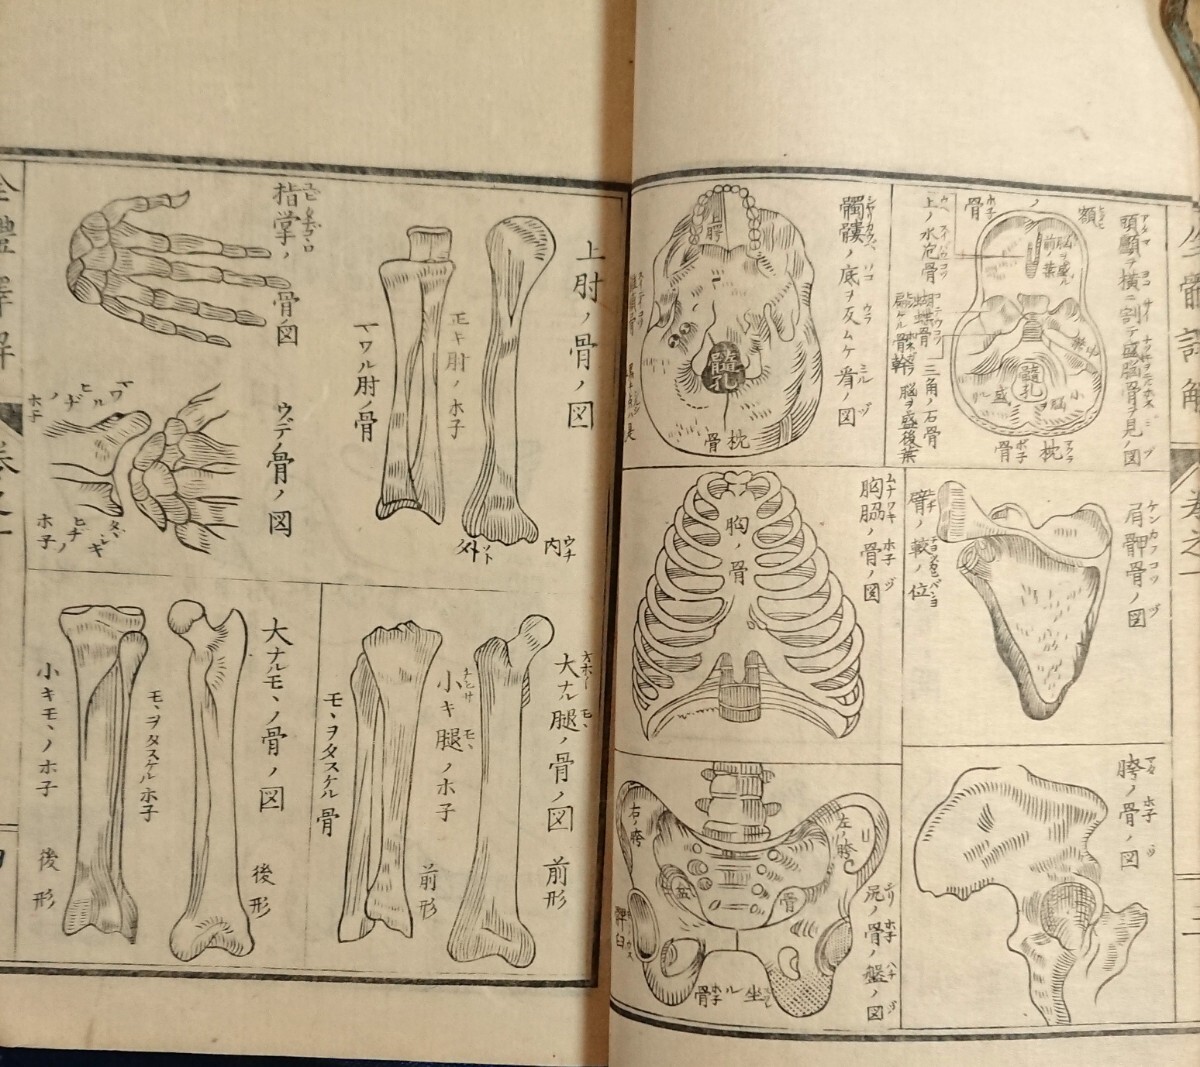 頭顱ヲ横ニ割テ盛脳骨ヲ見ノ図
額ノ骨
脳ヲ盛ル前ノ葉
髄孔
枕骨
上ノ水泡骨
蝴蝶骨
三角ノ石骨
脳ヲ盛後葉
髑髏ノ底ヲ反ムケ看ノ図
腭
髄孔
枕骨
肩胛骨ノ図
臂ノ骹ノ位
胸脇ノ骨ノ図
胸ノ骨
胯ノ骨ノ図
尻ノ骨ノ盤ノ図
左ノ胯
右ノ胯
髀臼
坐ル骨
上肘ノ骨ノ図
正キ肘ノホ子
マワル肘ノ骨
内
外
指掌ノ骨図
ウデ骨ノ図
マワルヒヂノホ子
タヾシキヒチノホ子
大ナル腿ノ骨ノ図
前形
小キ腿ノホ子
前形
モヽヲタスケル骨
大ナルモヽノ骨ノ図
後形
モヽヲタスケルホ子
小キモヽノホ子
後形
全體譯解
巻之一